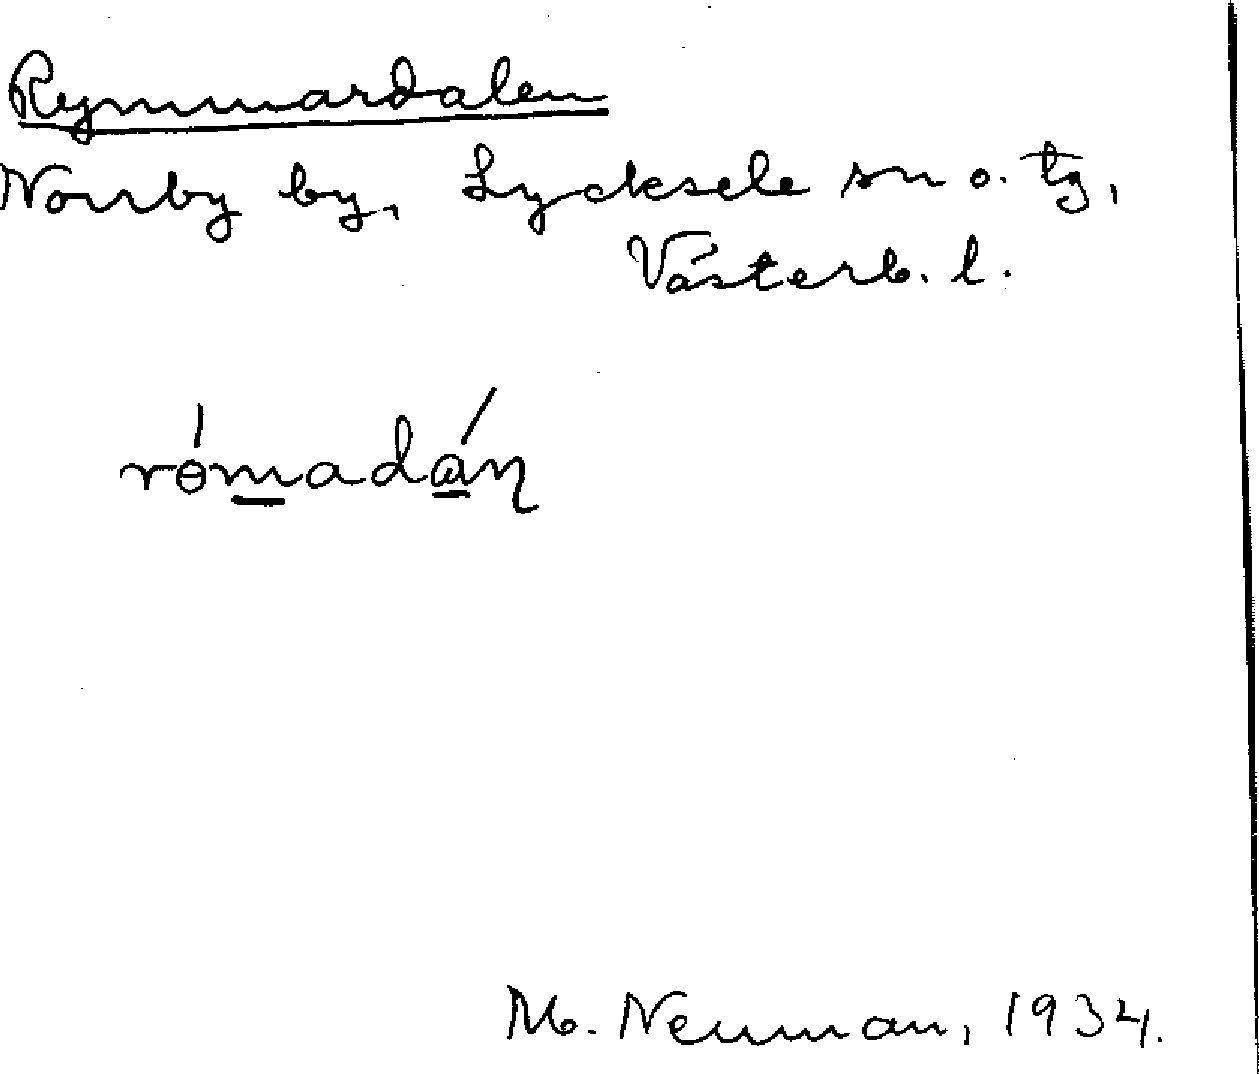 Rymmardalen
Norrby by, Lycksele sn o. tg,
Västerb. l.
rɵ́madán
M. Neuman, 1934.